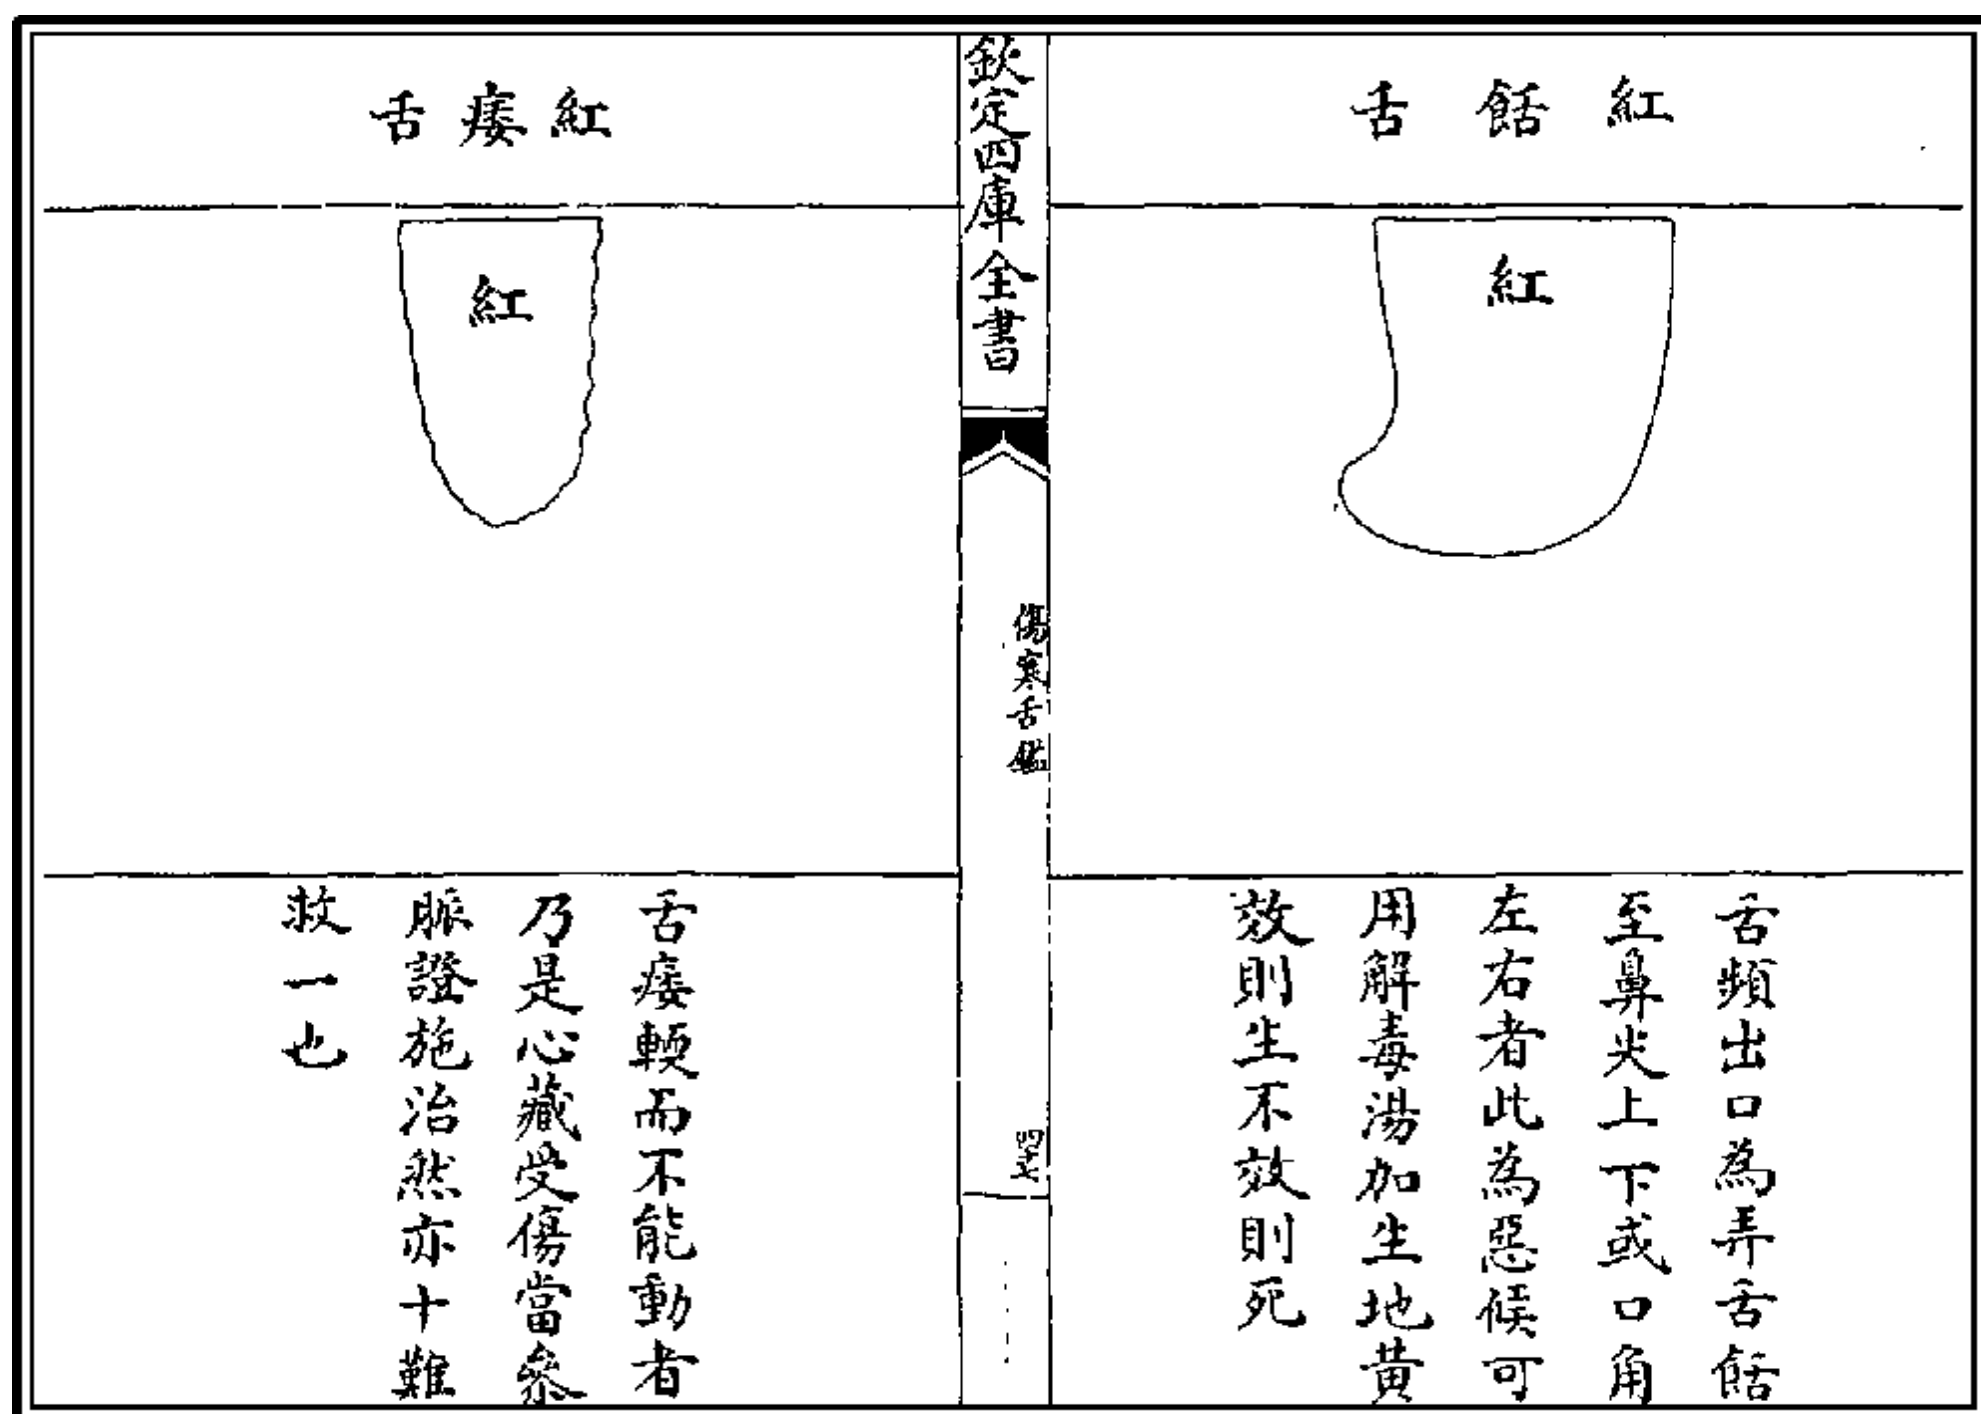 紅餂舌
紅
舌頻出口為弄舌餂
至鼻尖上下或口角
左右者此為惡候可
用解毒湯加生地黃
效則生不效則死
欽定四庫全書
傷寒舌鑑
四七
紅痿舌
紅
舌痿輭而不能動者
乃是心藏受傷當叅
脈證施治然亦十難
救一也